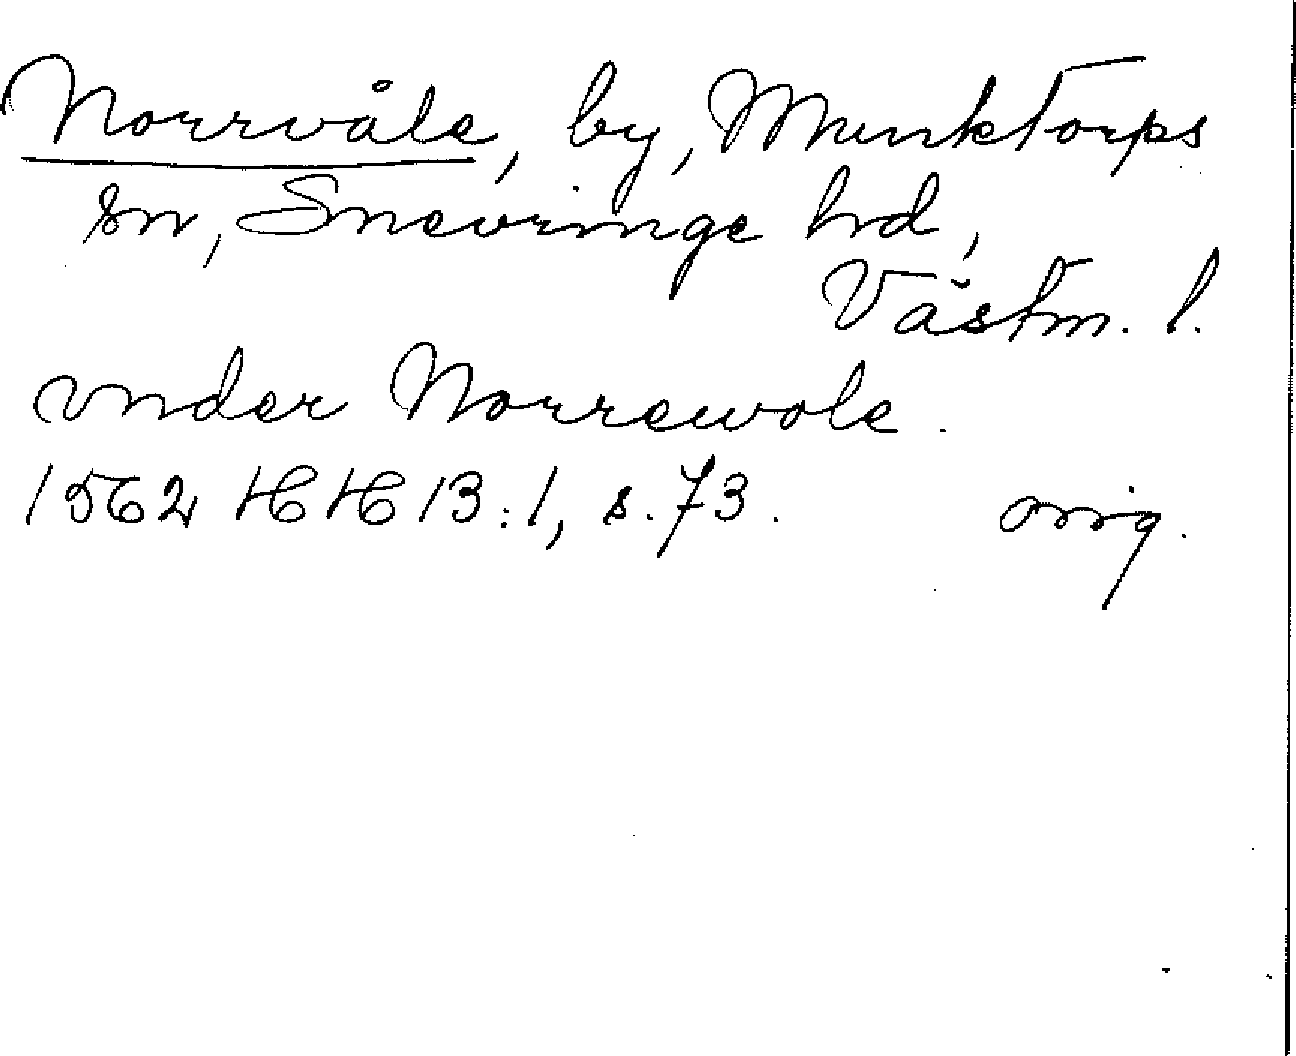 Norrvåle, by, Munktorps
sn, Snevringe hd,
Västm. l.
vnder Norrewole.
1562 HH 13:1, s. 73. orig.